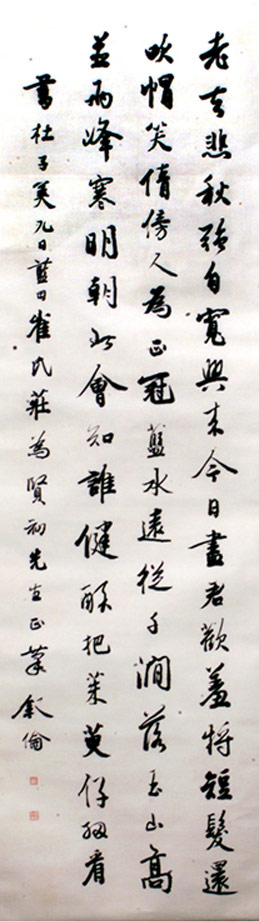 老去悲秋強自寬興來今日盡君歡羞將短髮還
吹帽笑倩傍人為正冠藍水遠從千澗落玉山高
並兩峰寒明朝此會知誰健醉把茱萸仔細看
書杜子美九日藍田崔氏莊為賢初先生正 葉敘倫